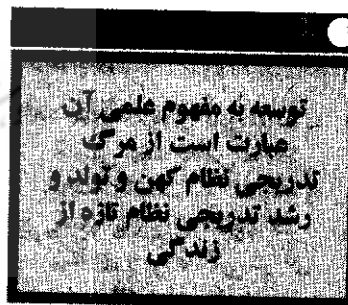 توسعه به مفهوم علمی آن
عبارت است از مرگ
تدریجی نظام کهن و تولد و
رشد تدریجی نظام تازه از
زندگی